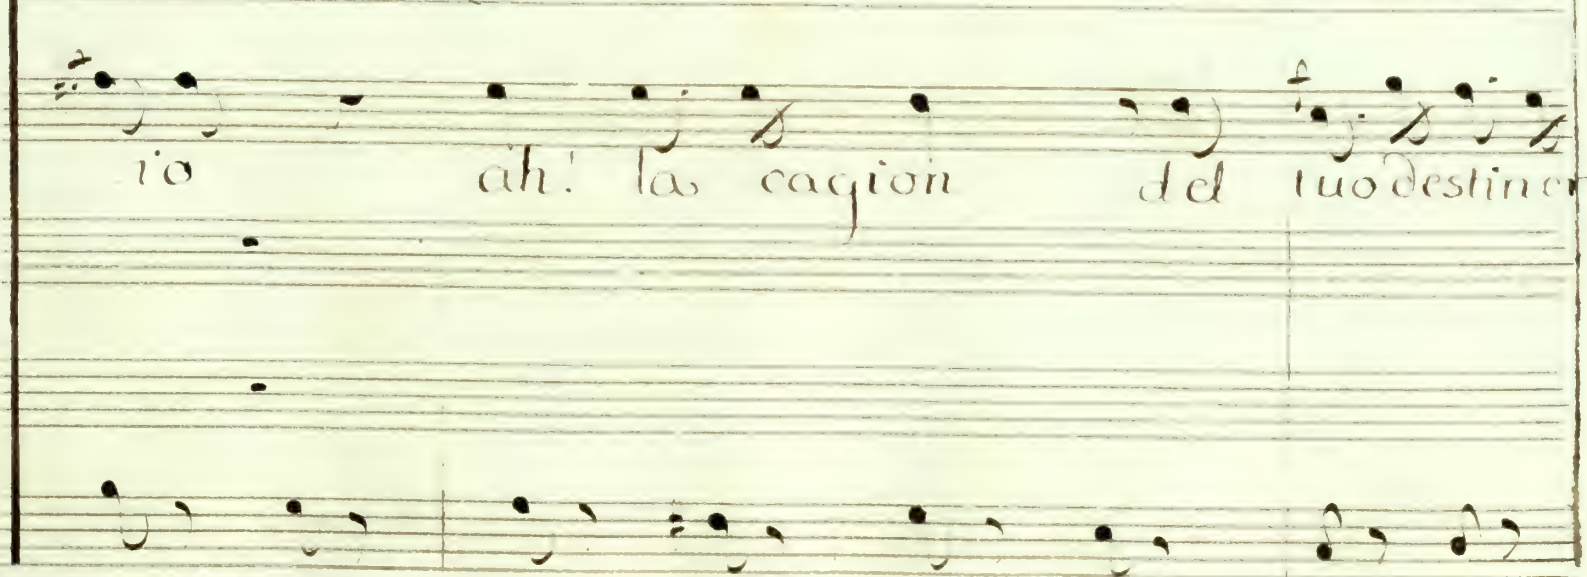 io ah! la cagion del tuo destin